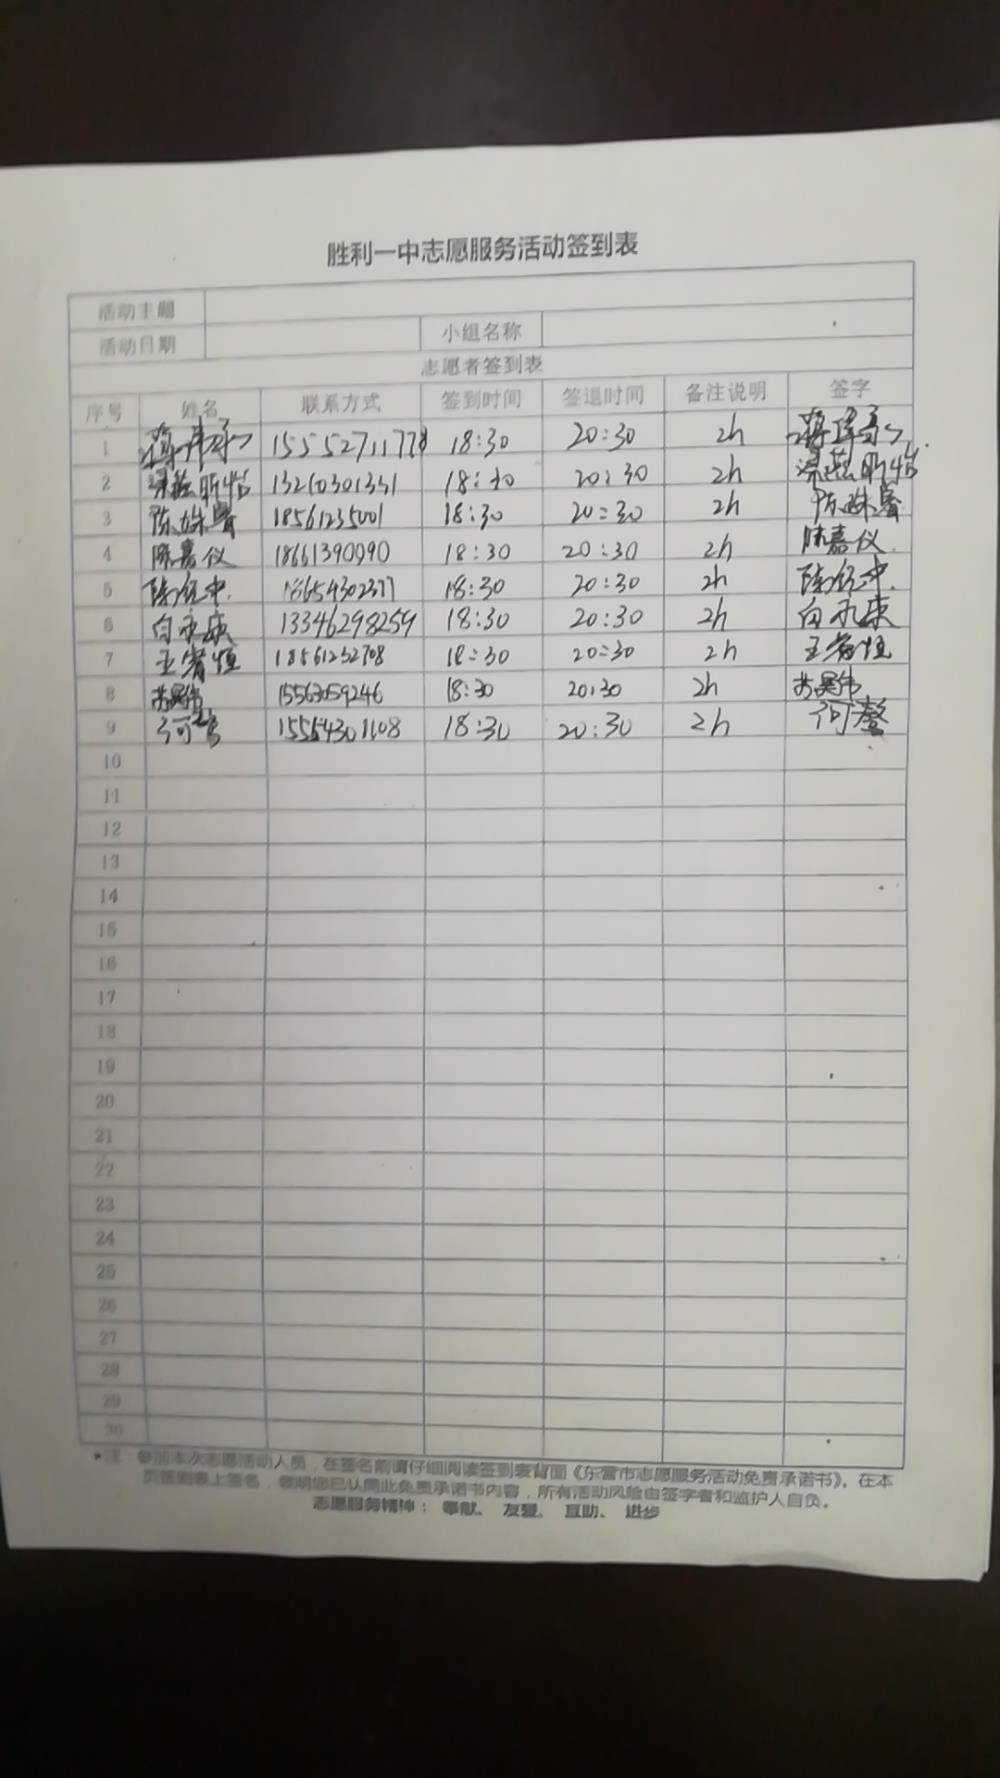 胜利一中志愿服务活动签到表
活动主题
活动日期 小组名称
志愿者签到表
序号 姓名 联系方式 签到时间 签退时间 备注说明 签字
1 15552711778 18:30 20:30 2h
2 18:30 20:30 2h
3 陈姝睿 18561235001 18:30 20:30 2h 陈姝睿
4 陈嘉仪 18661390090 18:30 20:30 2h 陈嘉仪
5 18654302377 18:30 20:30 2h
6 白永康 13346298259 18:30 20:30 2h 白永康
7 王睿恒 18561232708 18:30 20:30 2h 王睿恒
8 苏昊伟 15563059246 18:30 20:30 2h 苏昊伟
9 15564301108 18:30 20:30 2h
10
11
12
13
14
15
16
17
18
19
20
21
22
23
24
25
26
27
28
29
30
*注：参加本次志愿活动人员，在签名前请仔细阅读签到表背面《东营市志愿服务活动免责承诺书》。在本
页签到表上签名，表明您已认同此免责承诺书内容，所有活动风险由签字者和监护人自负。
志愿服务精神：奉献、友爱、互助、进步